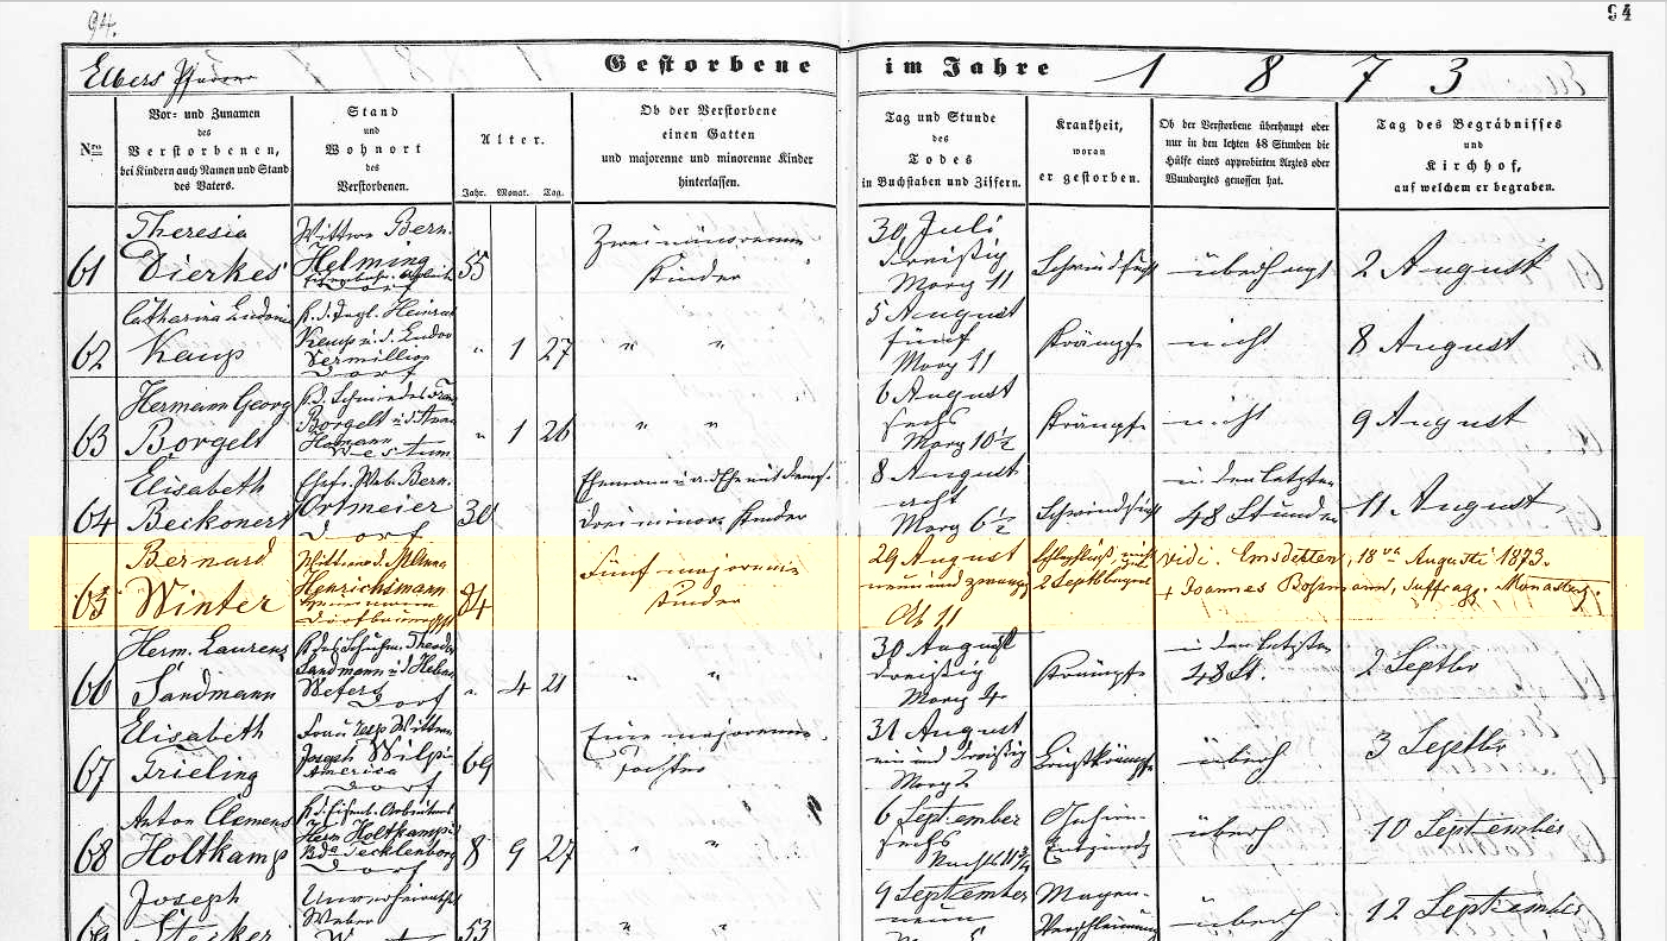 94.
94
Elbers Pfarrer
Gestorbene im Jahre 1873
Nro
Vor- und Zunamen
des
Verstorbenen,
bei Kindern auch Namen und Stand
des Vaters.
Stand
und
Wohnort
des
Verstorbenen.
Alter.
Jahr. Monat. Tag.
Ob der Verstorbene
einen Gatten
und majorenne und minorenne Kinder
hinterlassen.
Tag und Stunde
des
Todes
in Buchstaben und Ziffern.
Krankheit,
woran
er gestorben.
Ob der Verstorbene überhaupt oder
nur in den letzten 48 Stunden die
Hülfe eines approbirten Arztes oder
Wundarztes genossen hat.
Tag des Begräbnisses
und
Kirchhof,
auf welchem er begraben.
61
Theresia
Dierkes
Wittwe Bern.
Helming
Dorf
55
Zwei minorenne
Kinder
30 Juli
dreißig
Morg 11
Schwindsucht
überhaupt
2 August
62
Catharina Ludovi
Kaup
Heinrich
Kaup u. d.
Vermillion
Dorf
" 1 27
" "
5 August
fünf
Morg 11
Krämpfe
nicht
8 August
63
Hermann Georg
Borgelt
K. d. Schmiedes
Borgelt u. d. Anna
Westum
" 1 26
" "
6 August
sechs
Morg 10½
Krämpfe
nicht
9 August
64
Elisabeth
Beckonert
Ehefr. Web. Bern.
Ortmeier
Dorf
30
Ehemann u. a. d. Ehe mit dems.
drei minor. Kinder
8 August
acht
Morg 6½
Schwindsucht
in den letzten
48 Stunden
11 August
65
Bernard
Winter
Henrichsmann
84
Fünf majorenne
Kinder
29 August
neun und zwanzig
Ab 11
nicht
2 Septb
vidi. Emsdetten, 18va Augusti 1873.
+ Joannes Boßmann, Suffrag. Monast.
66
Herm. Laurenz
Sandmann
K. des Schuhm. Theodor
Sandmann u. d. Helena
Weters
Dorf
" 4 21
" "
30 August
dreißig
Morg 4
Krämpfe
in den letzten
48 St.
2 Septbr
67
Elisabeth
Frieling
Frau resp Wittwe
Joseph Wilp
America
Dorf
69
Eine majorenne
Tochter
31 August
ein und dreißig
Morg 2
Brustkrämpfe
überh
3 Septbr
68
Anton Clemens
Holtkamp
K. d. Eisenb. Arbeiters
Herm Holtkamp u.
Tecklenborg
Dorf
8 9 27
" "
6 September
sechs
Nachts 11¾
Gehirn-
Entzündg
überh
10 September
69
Joseph
Stecker
Unverheirathet
Weber
53
" "
9 September
neun
Magen-
Verschleimung
überh
12 September